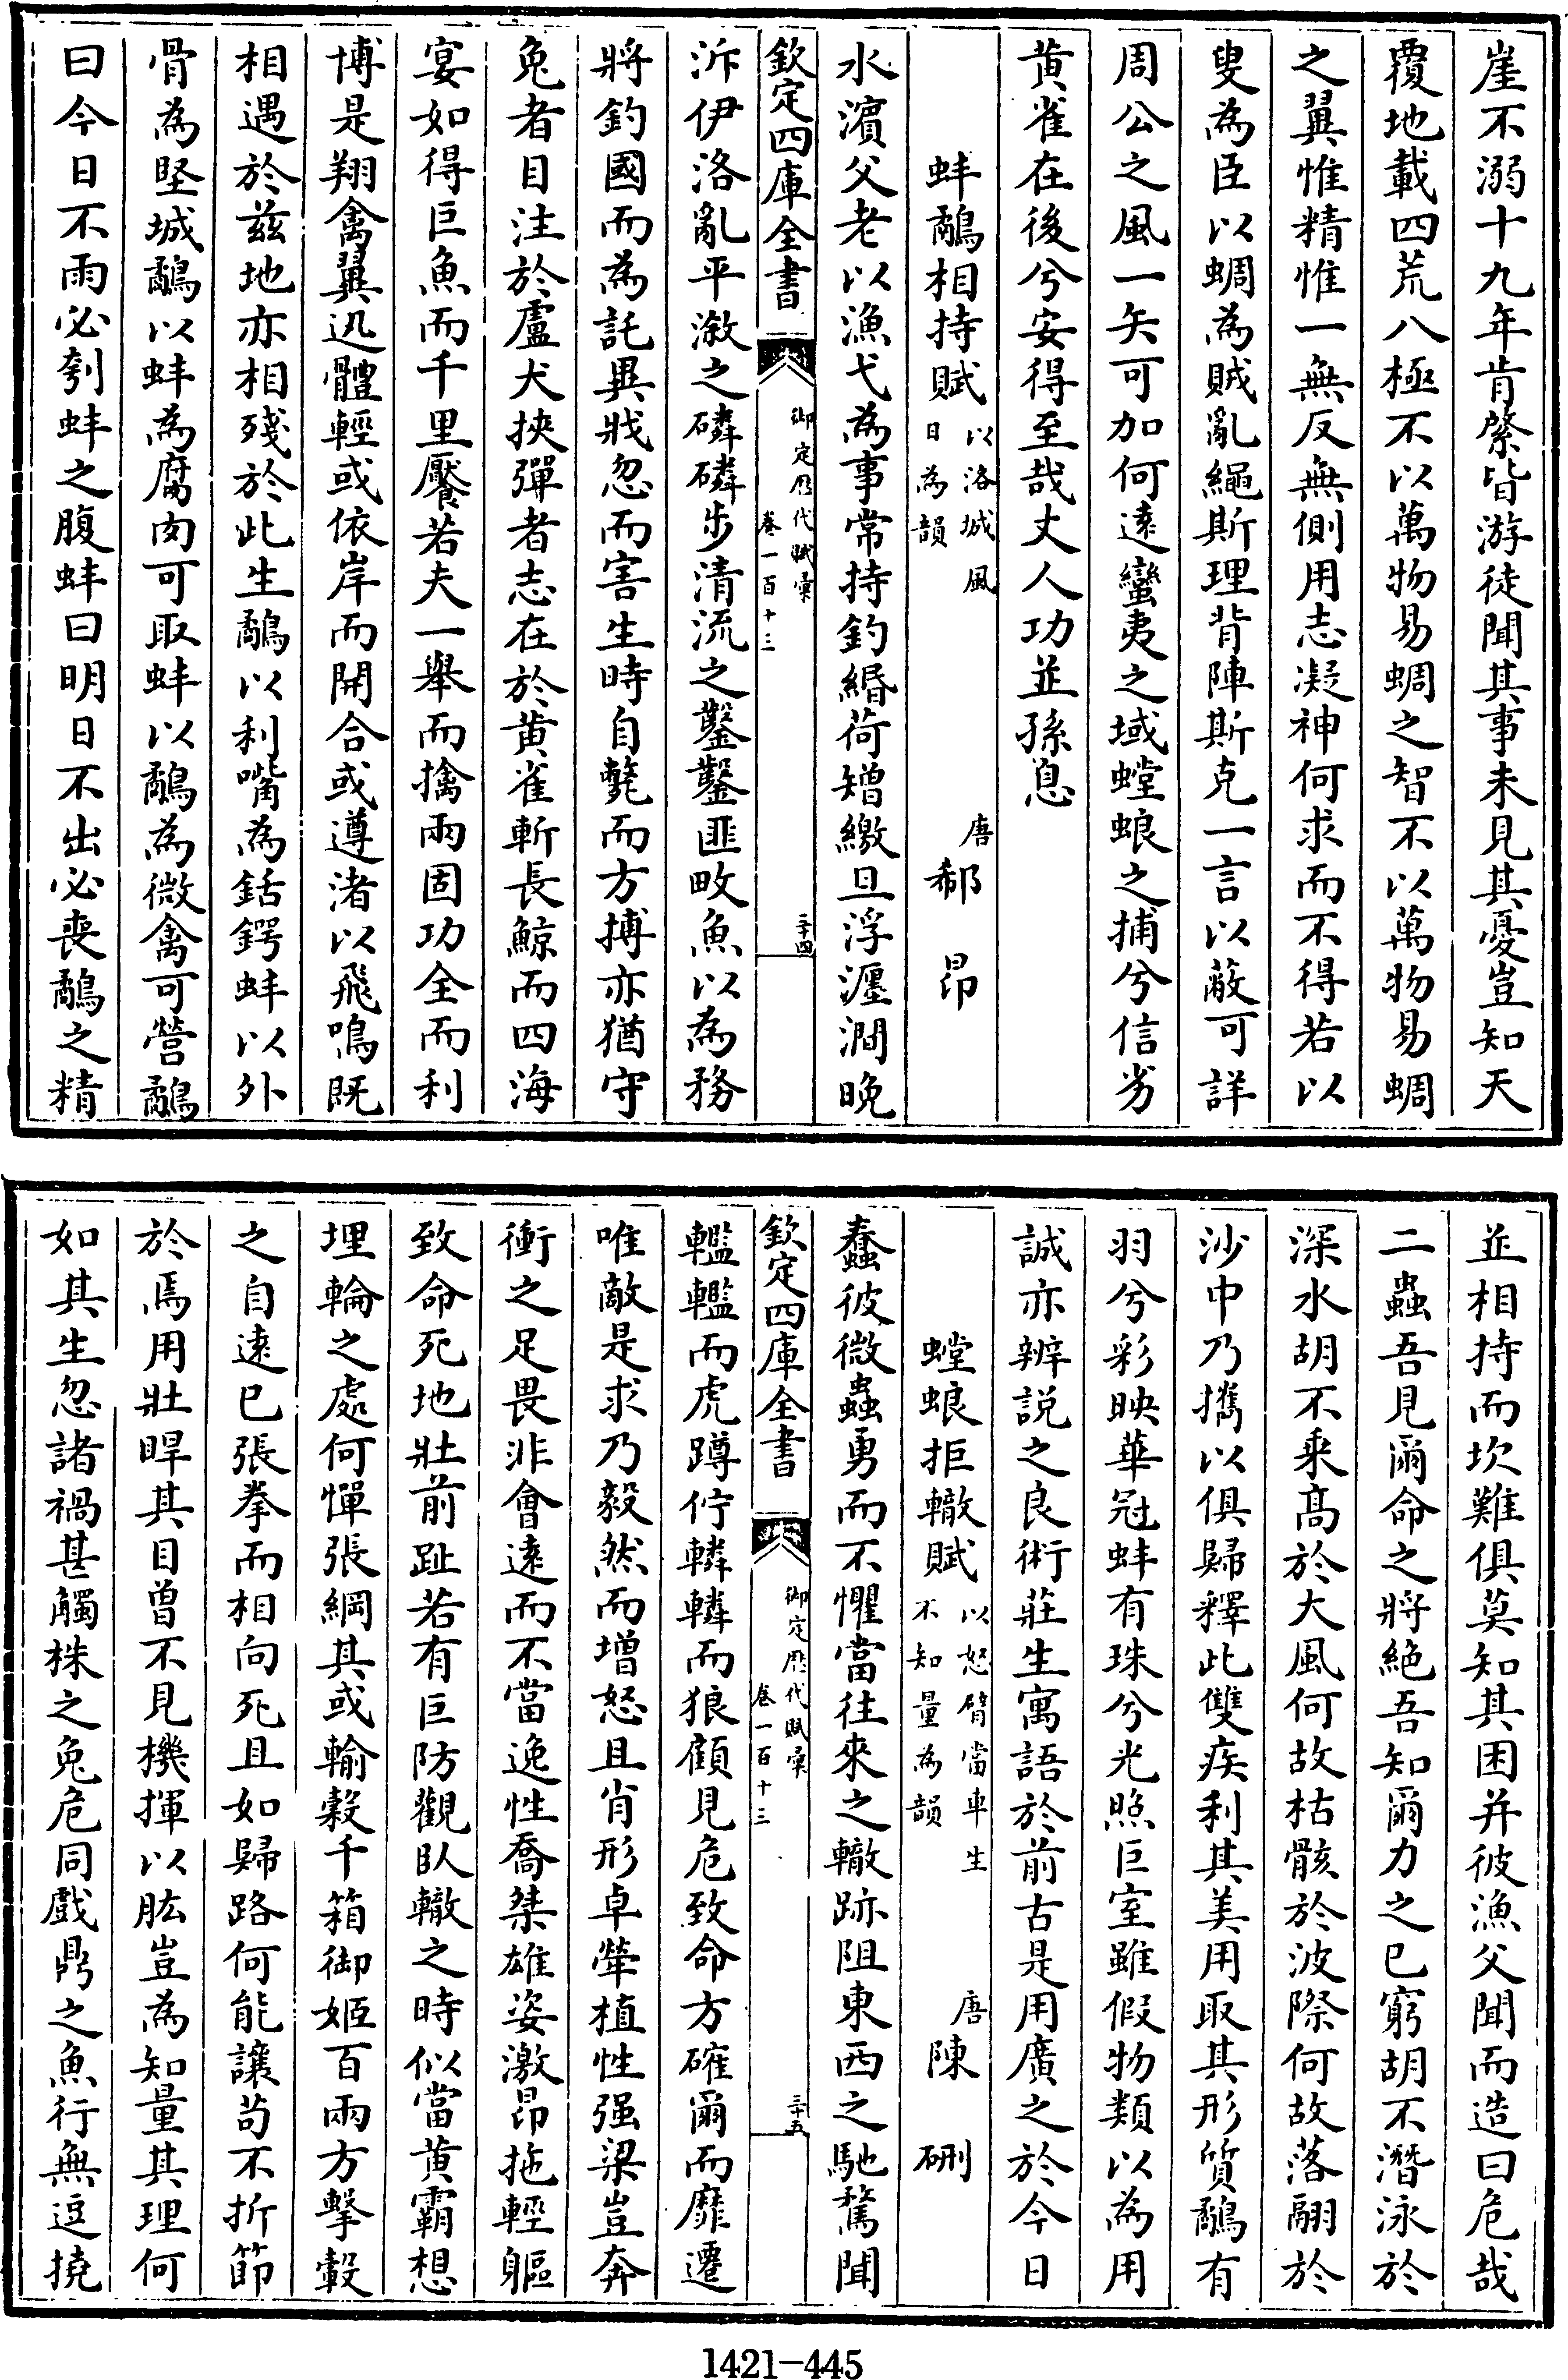 崖不溺十九年肯綮皆游徒聞其事未見其憂豈知天
覆地載四荒八極不以萬物易蜩之智不以萬物易蜩
之翼惟精惟一無反無側用志凝神何求而不得若以
叟為臣以蜩為賊亂繩斯理背陣斯克一言以蔽可詳
周公之風一矢可加何遠蠻夷之域螳蜋之捕兮信劣
黄雀在後兮安得至哉丈人功並孫息
蚌鷸相持賦以洛城風日為韻 唐郗昂
水濵父老以漁弋為事常持釣緡荷矰繳旦浮瀍澗晚
欽定四庫全書 御定歷代賦彚 卷一百十三 三十四
泝伊洛亂平潋之磷磷步清流之鑿鑿匪畋魚以為務
將釣國而為託異戕忽而害生時自毙而方搏亦猶守
兔者目注於盧犬挾彈者志在於黄雀斬長鯨而四海
宴如得巨魚而千里饜若夫一舉而擒兩固功全而利
博是翔禽翼迅體輕或依岸而開合或遵渚以飛鳴既
相遇於兹地亦相殘於此生鷸以利嘴為銛鍔蚌以外
骨為堅城鷸以蚌為腐肉可取蚌以鷸為微禽可營鷸
曰今日不雨必刳蚌之腹蚌曰明日不出必喪鷸之精
並相持而坎難俱莫知其困并彼漁父聞而造曰危哉
二蟲吾見爾命之將絶吾知爾力之已窮胡不潛泳於
深水胡不乘髙於大風何故枯骸於波際何故落翮於
沙中乃攜以俱歸釋此雙疾利其美用取其形質鷸有
羽兮彩映華冠蚌有珠兮光照巨室雖假物類以為用
誠亦辨説之良術莊生寓語於前古是用廣之於今日
螳蜋拒轍賦以怒臂當車生不知量為韻 唐陳硎
蠢彼微蟲勇而不懼當往來之轍跡阻東西之馳騖聞
欽定四庫全書 御定歷代賦彚 卷一百十三 三十五
轞轞而虎蹲佇轔轔而狼顧見危致命方確爾而靡遷
唯敵是求乃毅然而增怒且肖形卓犖植性强梁豈奔
衝之足畏非會遠而不當逸性喬桀雄姿激昂拖輕軀
致命死地壯前趾若有巨防觀臥轍之時似當黄霸想
埋輪之處何憚張綱其或輸穀千箱御姬百兩方擊轂
之自遠已張拳而相向死且如歸路何能讓茍不折節
於焉用壯睅其目曽不見機揮以肱豈為知量其理何
如其生忽諸禍甚觸株之兔危同戲鼎之魚行無逗撓
1421-445